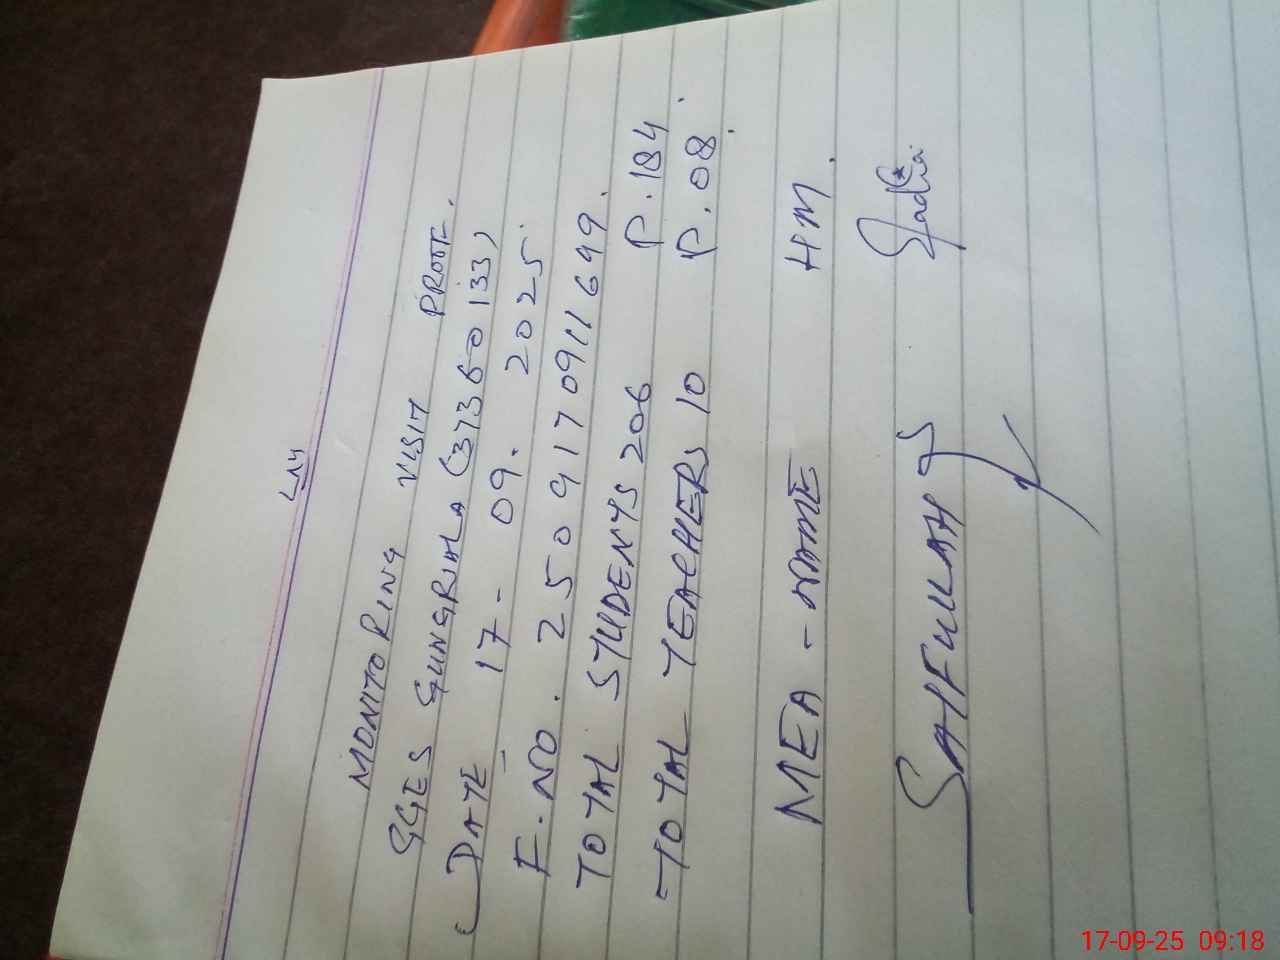 MONITORING VISIT PROOF.
GGES GUNGRIALA (37360133)
DATE 17-09.2025
F.NO. 25091709116 99.
TOTAL STUDENTS 206 P.184
TOTAL TEACHERS 10 P.08.
MEA - NAME HM.
SAIFULLAH Sadia
17-09-25 09:18